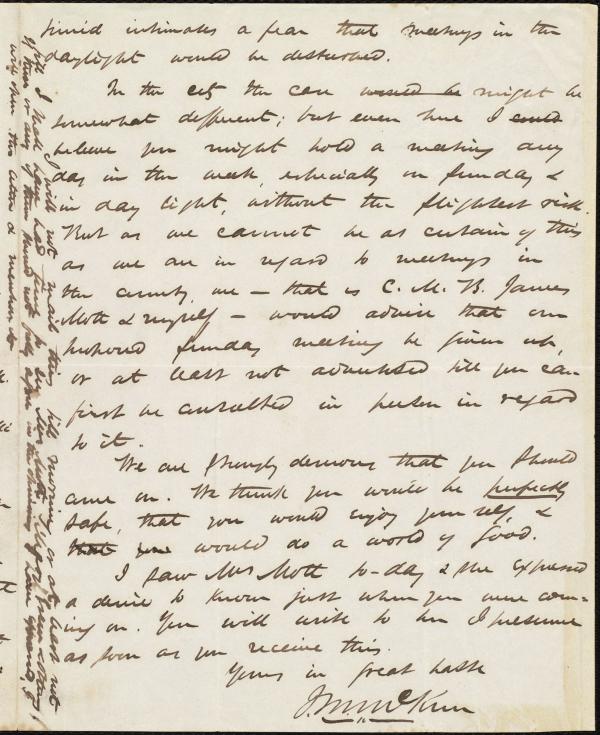 friend intimates a fear that meetings in the
daylight would be disturbed.
In the city the case would be might be
somewhat different; but even here I could
believe you might hold a meeting any
day in the week, especially on Sunday &
in day light, without the slightest risk.
But as we cannot be as certain of this
as we are in regard to meetings in
the country, we — that is C. M. B. James
Mott & myself — would advise that our
proposed Sunday meeting be given up,
or at least not advertised till you can
first be consulted in person in regard
to it.
We are strongly desirous that you should
come on. We think you would be perfectly
safe, that you would enjoy yourself, &
that you would do a world of good.
I saw Mrs Mott to-day & she expressed
a desire to know just when you were com-
ing on. You will write to her I presume
as soon as you receive this.
Yours in great haste
J. M. McKim
I will not mail this till morning, or at least not
till I shall have had time to see Mrs Mott
will open this letter & mention it